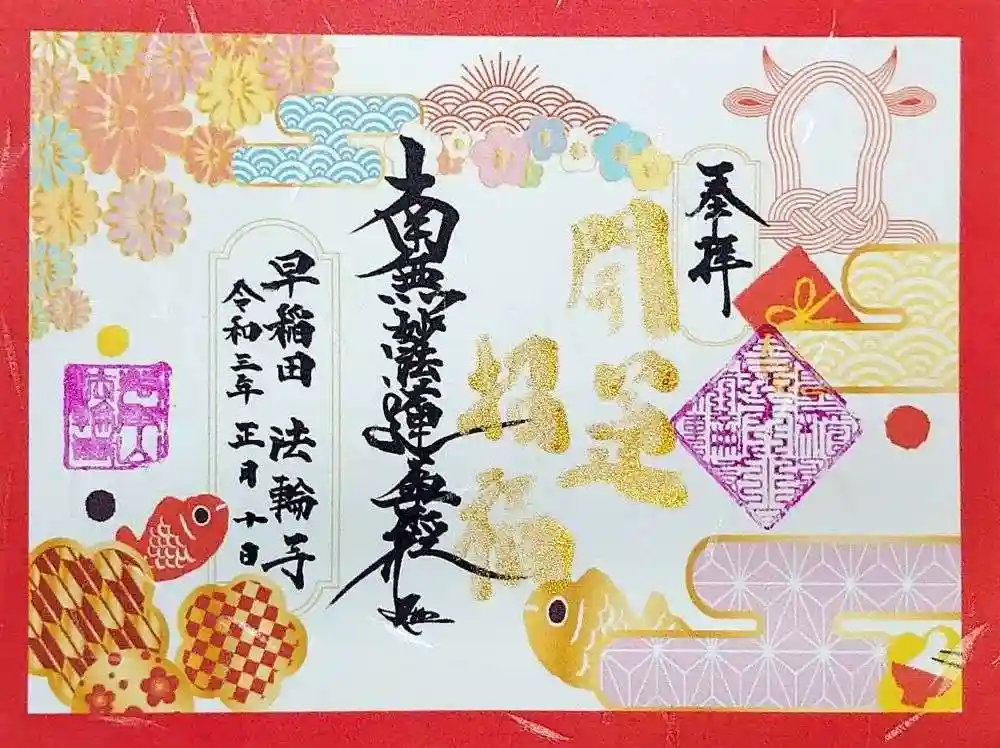 奉拝
開運
招福
南無妙法蓮華経
早稲田 法輪寺
令和三年 正月 十日